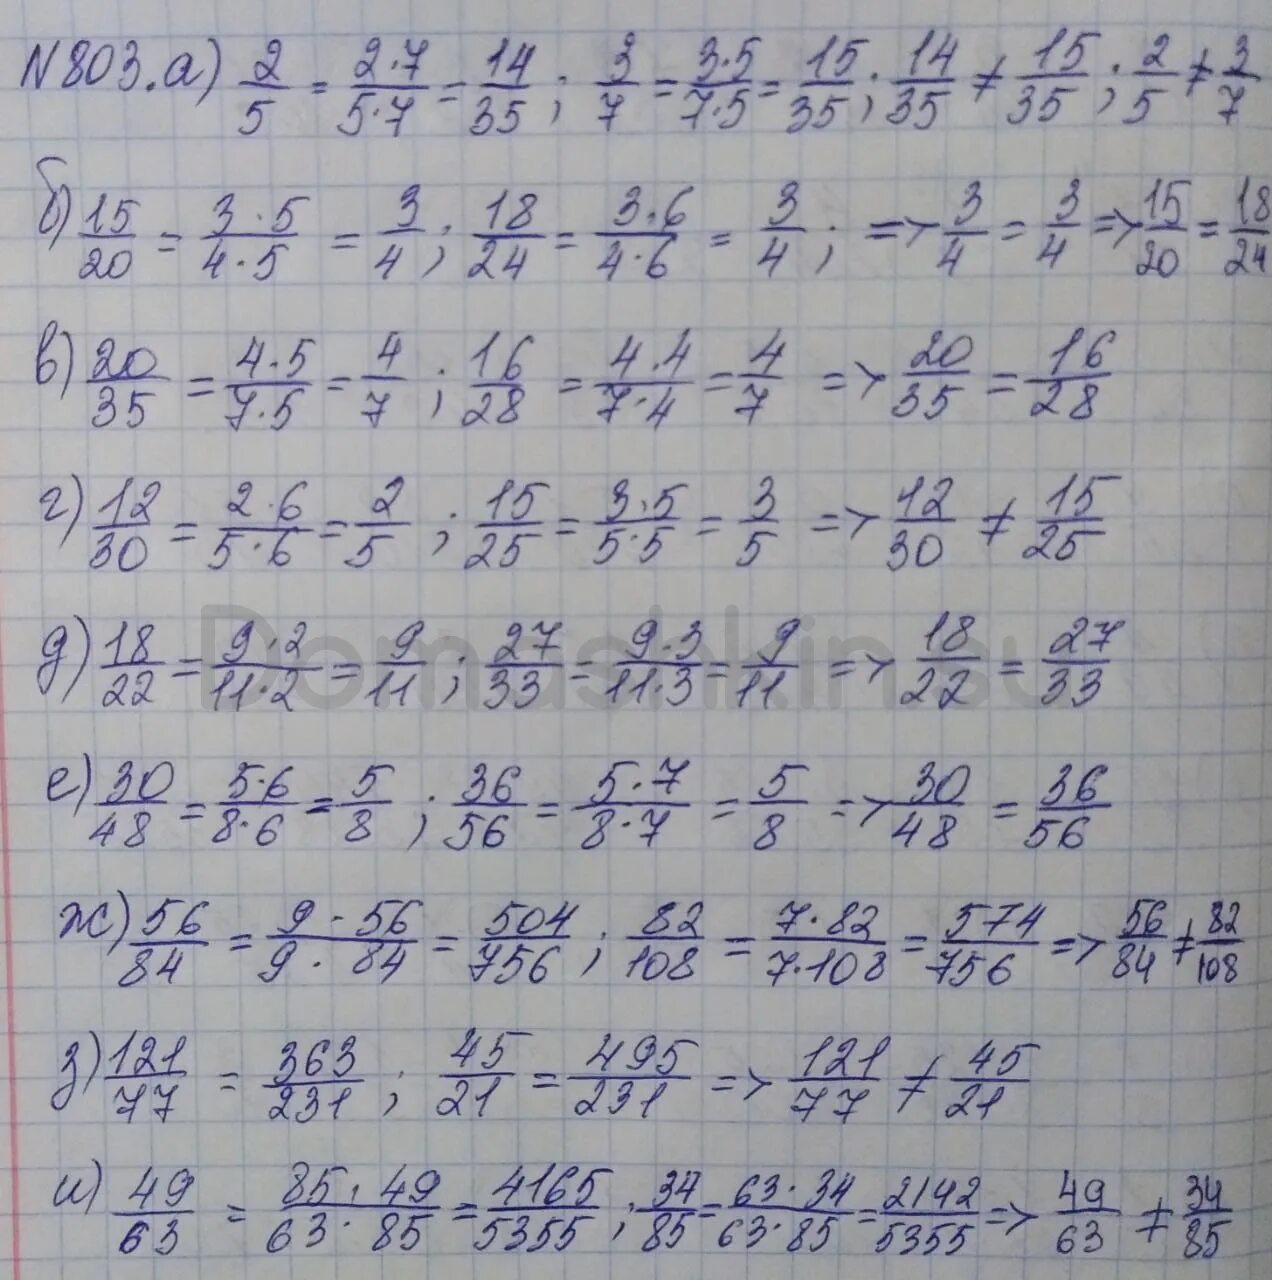 N803. а) 2/5 = 2·7/5·7 = 14/35 ; 3/7 = 3·5/7·5 = 15/35 ; 14/35 ≠ 15/35 ; 2/5 ≠ 3/7
б) 15/20 = 3·5/4·5 = 3/4 ; 18/24 = 3·6/4·6 = 3/4 ; => 3/4 = 3/4 => 15/20 = 18/24
в) 20/35 = 4·5/7·5 = 4/7 ; 16/28 = 4·4/7·4 = 4/7 => 20/35 = 16/28
г) 12/30 = 2·6/5·6 = 2/5 ; 15/25 = 3·5/5·5 = 3/5 => 12/30 ≠ 15/25
д) 18/22 = 9·2/11·2 = 9/11 ; 27/33 = 9·3/11·3 = 9/11 => 18/22 = 27/33
Domashkin.su
е) 30/48 = 5·6/8·6 = 5/8 ; 36/56 = 5·7/8·7 = 5/8 => 30/48 = 36/56
ж) 56/84 = 9·56/9·84 = 504/756 ; 82/108 = 7·82/7·108 = 574/756 => 56/84 ≠ 82/108
з) 121/77 = 363/231 ; 45/21 = 495/231 => 121/77 ≠ 45/21
и) 49/63 = 85·49/63·85 = 4165/5355 ; 34/85 = 63·34/63·85 = 2142/5355 => 49/63 ≠ 34/85